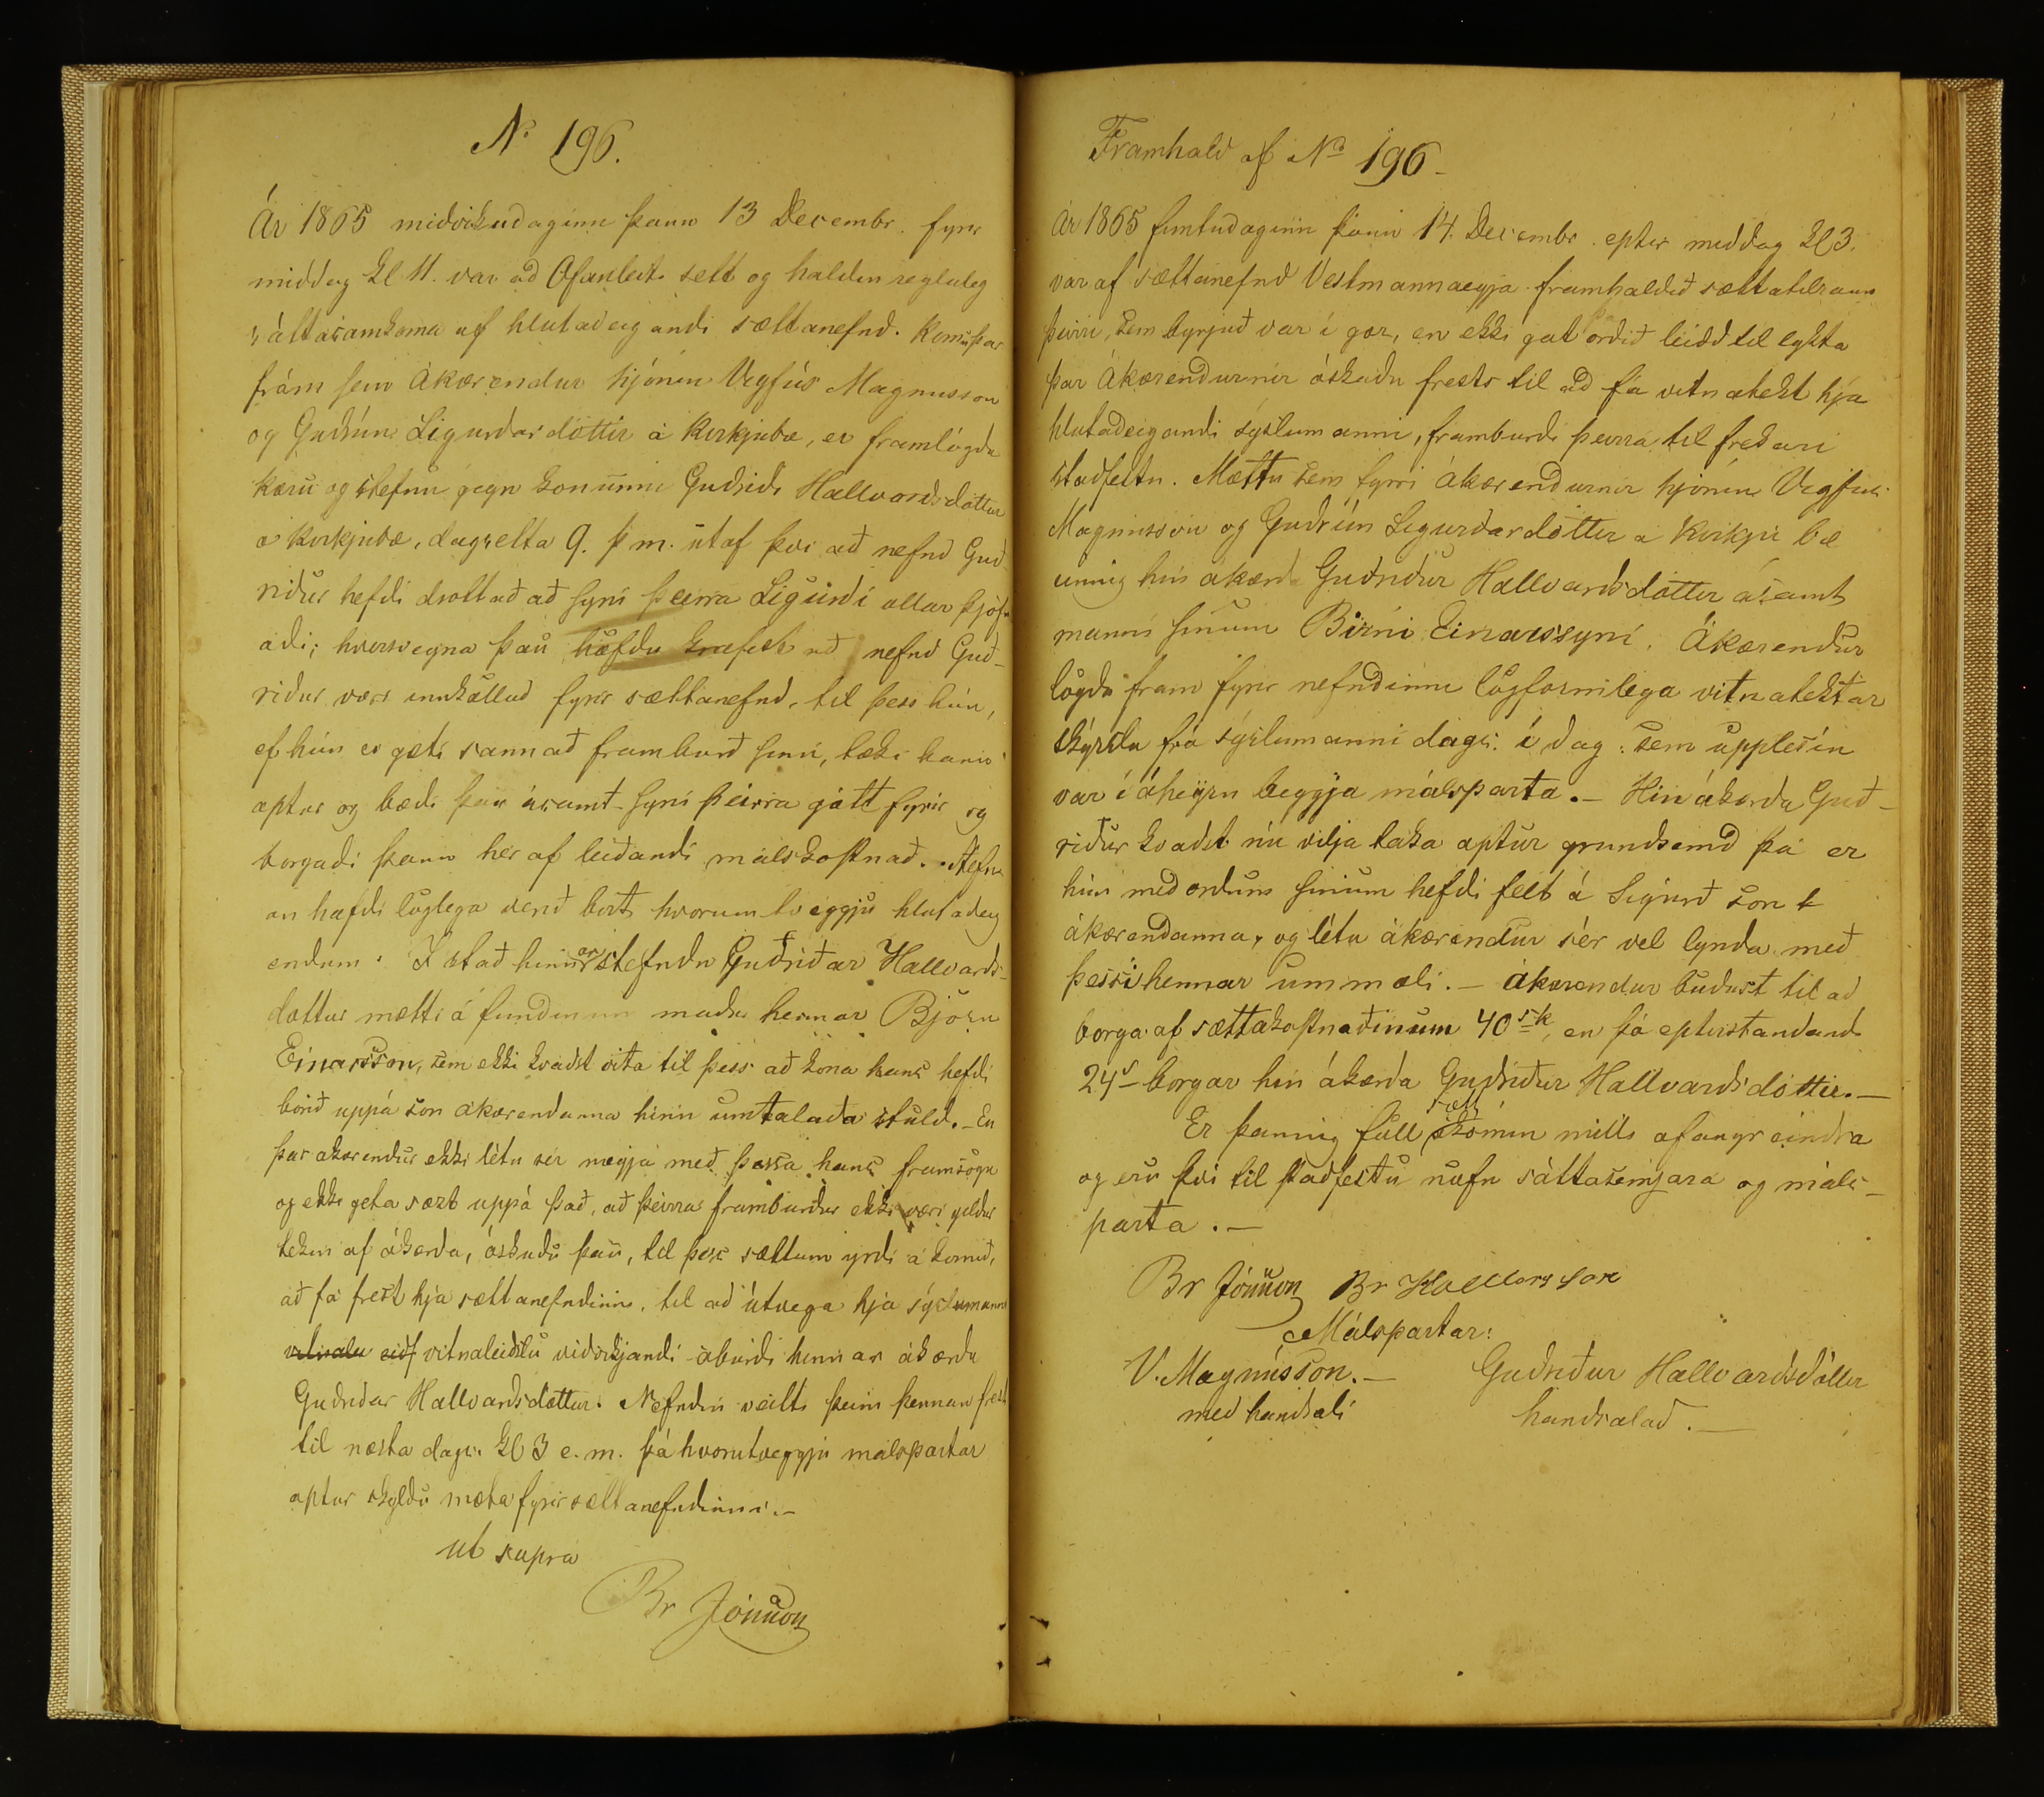 No 196.
Ár 1865 miðvikudaginn þann 13 Decembr. fyrir
middag Kl 11. var að Ofanleiti sett og haldin regluleg
sáttasamkoma af hlutadeigandi sættanefnd. Komu þar
fram sem Ákærendur hjónin Vigfús Magnusson
og Guðrún Sigurdardóttir á Kirkjubæ, er framlögdu
kæru og stefnu gegn konunni Guðriði Hallvardsdóttur
á Kirkjubæ, dagsetta 9. þ m. útaf því að nefnd Guð-
riður hefdi dróttað að syni þeirra Sigurdi ullar þjófn
adi; hversvegna þau höfdu krafist að nefnd Guð-
riður væri innkölluð fyrir sættanefnd, til þess hún,
ef hún ei gæti sannað framburð sinn, tæki hann
aptur og bædi þau ásamt syni þeirra gott fyrir og
borgadi þann her af leiðandi málskostnað. Stefn
an hafdi löglega verið birt hvorum tveggju hlutadeig
endum. I stað hinnar stefndu Guðriðar Hallvards-
dottur mætti á fundinum madur hennar Björn
Einarsson, sem ekki kvaðst vita til þess að kona hans hefdi
borið uppá son ákærendanna hinn umtalaða stuld. - En
þar akærendur ekki létu sér nægja með þessa hans framsögu
og ekki geta sæzt uppá það, að þeirra framburdur ekki væri gildur
tekin af ákærda, óskudu þau, til þess sættum yrdi á komið,
að fá frest hjá sættanefndinni, til að útvega hjá sýslumanni
vitnaleiðslu viðvikjandi áburdi hinnar ákærdu
Guðriðar Hallvardsdottur. Nefndin veitti þeim þennan frest
til næsta dags. Kl 3 e. m. þá hvorutveggju málspartar
aptur skyldu mæta fyrir sættanefndinni. -
ut supra
Br Jónsson
Framhald af No 196 -
Ár 1865 fimtudaginn þann 14. Decembr. eptir middag Kl 3.
var af sættanefnd Vestmannaeyja framhaldið sættatilraun
þeirri, sem byrjuð var í gær, en ekki gat þá orðið leidd til lykta
þar Ákærendurnir óskadu frests til að fá vitnatekt hjá
hlutadeigandi sýslumanni, framburdi þeirra til frekari
stadfestu. Mættu sem fyrri ákærendurnir hjónin Vigfús
Magnússon og Guðrún Sigurdardóttir a Kirkju bæ
einnig hin ákærda Guðriður Hallvardsdóttir ásamt
manni sínum Birni Einarssyni. Ákærendur
lögdu fram fyrir nefndinni lögformilega vitnatektar
skýrslu frá sýslumanni dags: í dag: sem upplesin
var í áheyrn beggja málsparta. - Hin ákærda Guð-
riður kvadst nú vilja taka aptur grundsemd þá er
hún med ordum sínum hefdi fellt á Sigurð son
ákærendanna, og létu ákærendur sér vel lynda með
þessi hennar ummæli. - Ákærendur buðust til að
borga af sættakostnaðinum 40 sk, en þá eptirstandandi
24 s - borgar hin ákærda Guðriður Hallvardsdóttir. -
Er þannig full sætt ákomin milli afangreindra
og eru því til staðfestu nöfn sáttasemjara og máls-
parta. -
Br Jónsson Br Halldorsson
Málspartar:
V. Magnússon. - Guðriður Hallvardsdóttir
með handsali handsalað. -